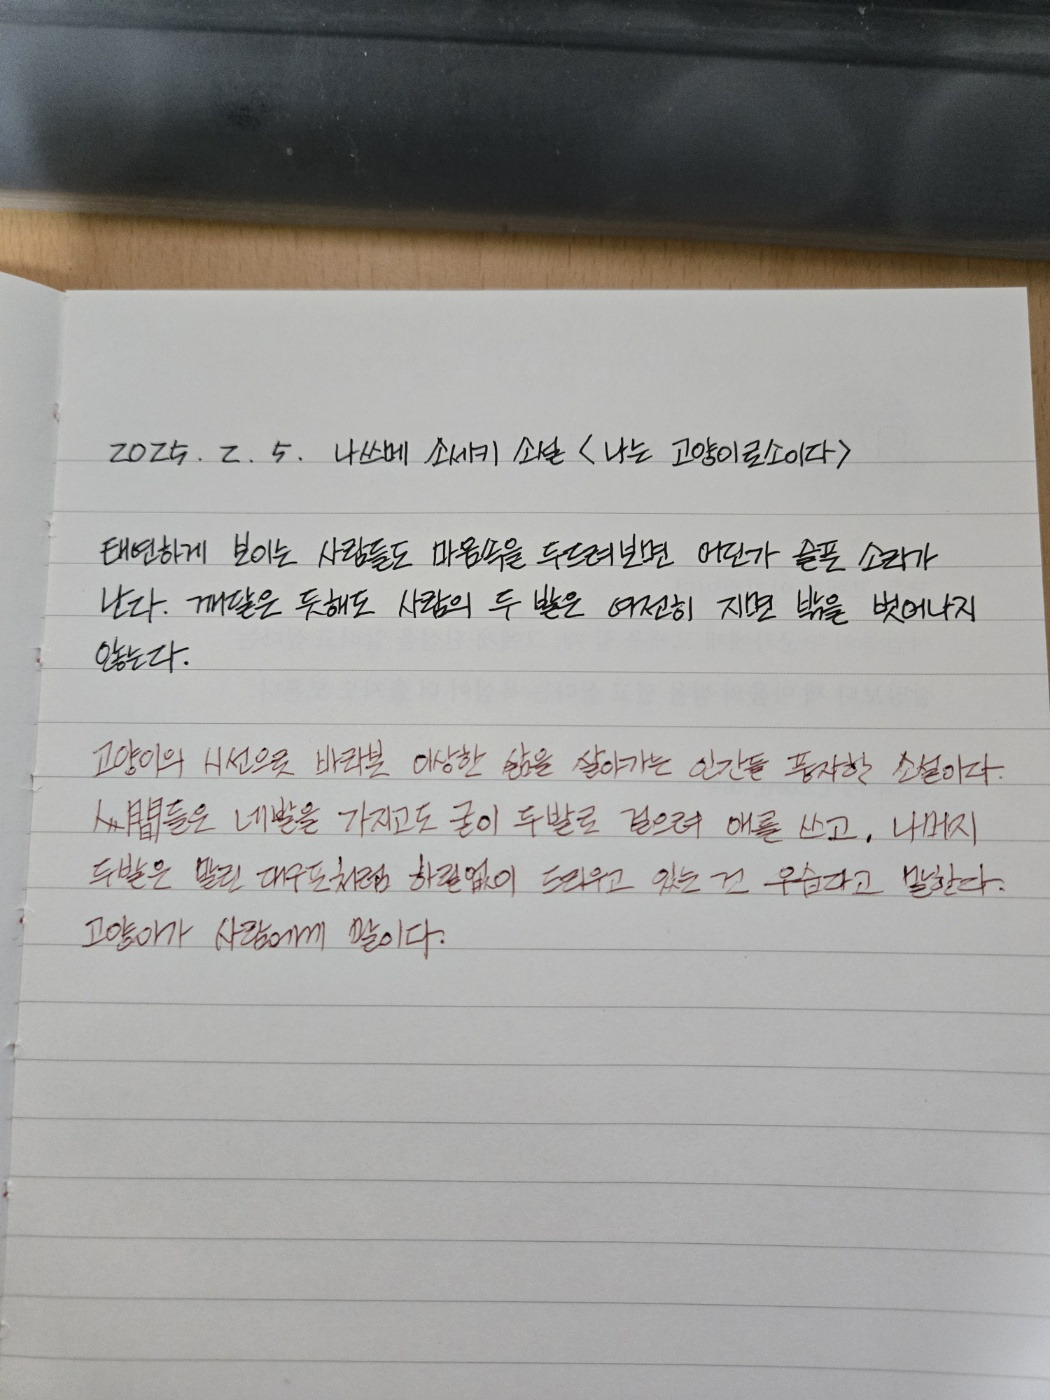 2025. 2. 5. 나쓰메 소세키 소설 <나는 고양이로소이다>
태연하게 보이는 사람들도 마음속을 두드려보면 어딘가 슬픈 소리가
난다. 깨달은 듯해도 사람의 두 발은 여전히 지면 밖을 벗어나지
않는다.
고양이의 시선으로 바라본 이상한 삶을 살아가는 인간들 풍자한 소설이다.
人間들은 네발을 가지고도 굳이 두발로 걸으려 애를 쓰고, 나머지
두발은 말린 대구포처럼 하릴없이 드리우고 있는 건 우습다고 말한다.
고양이가 사람에게 말이다.